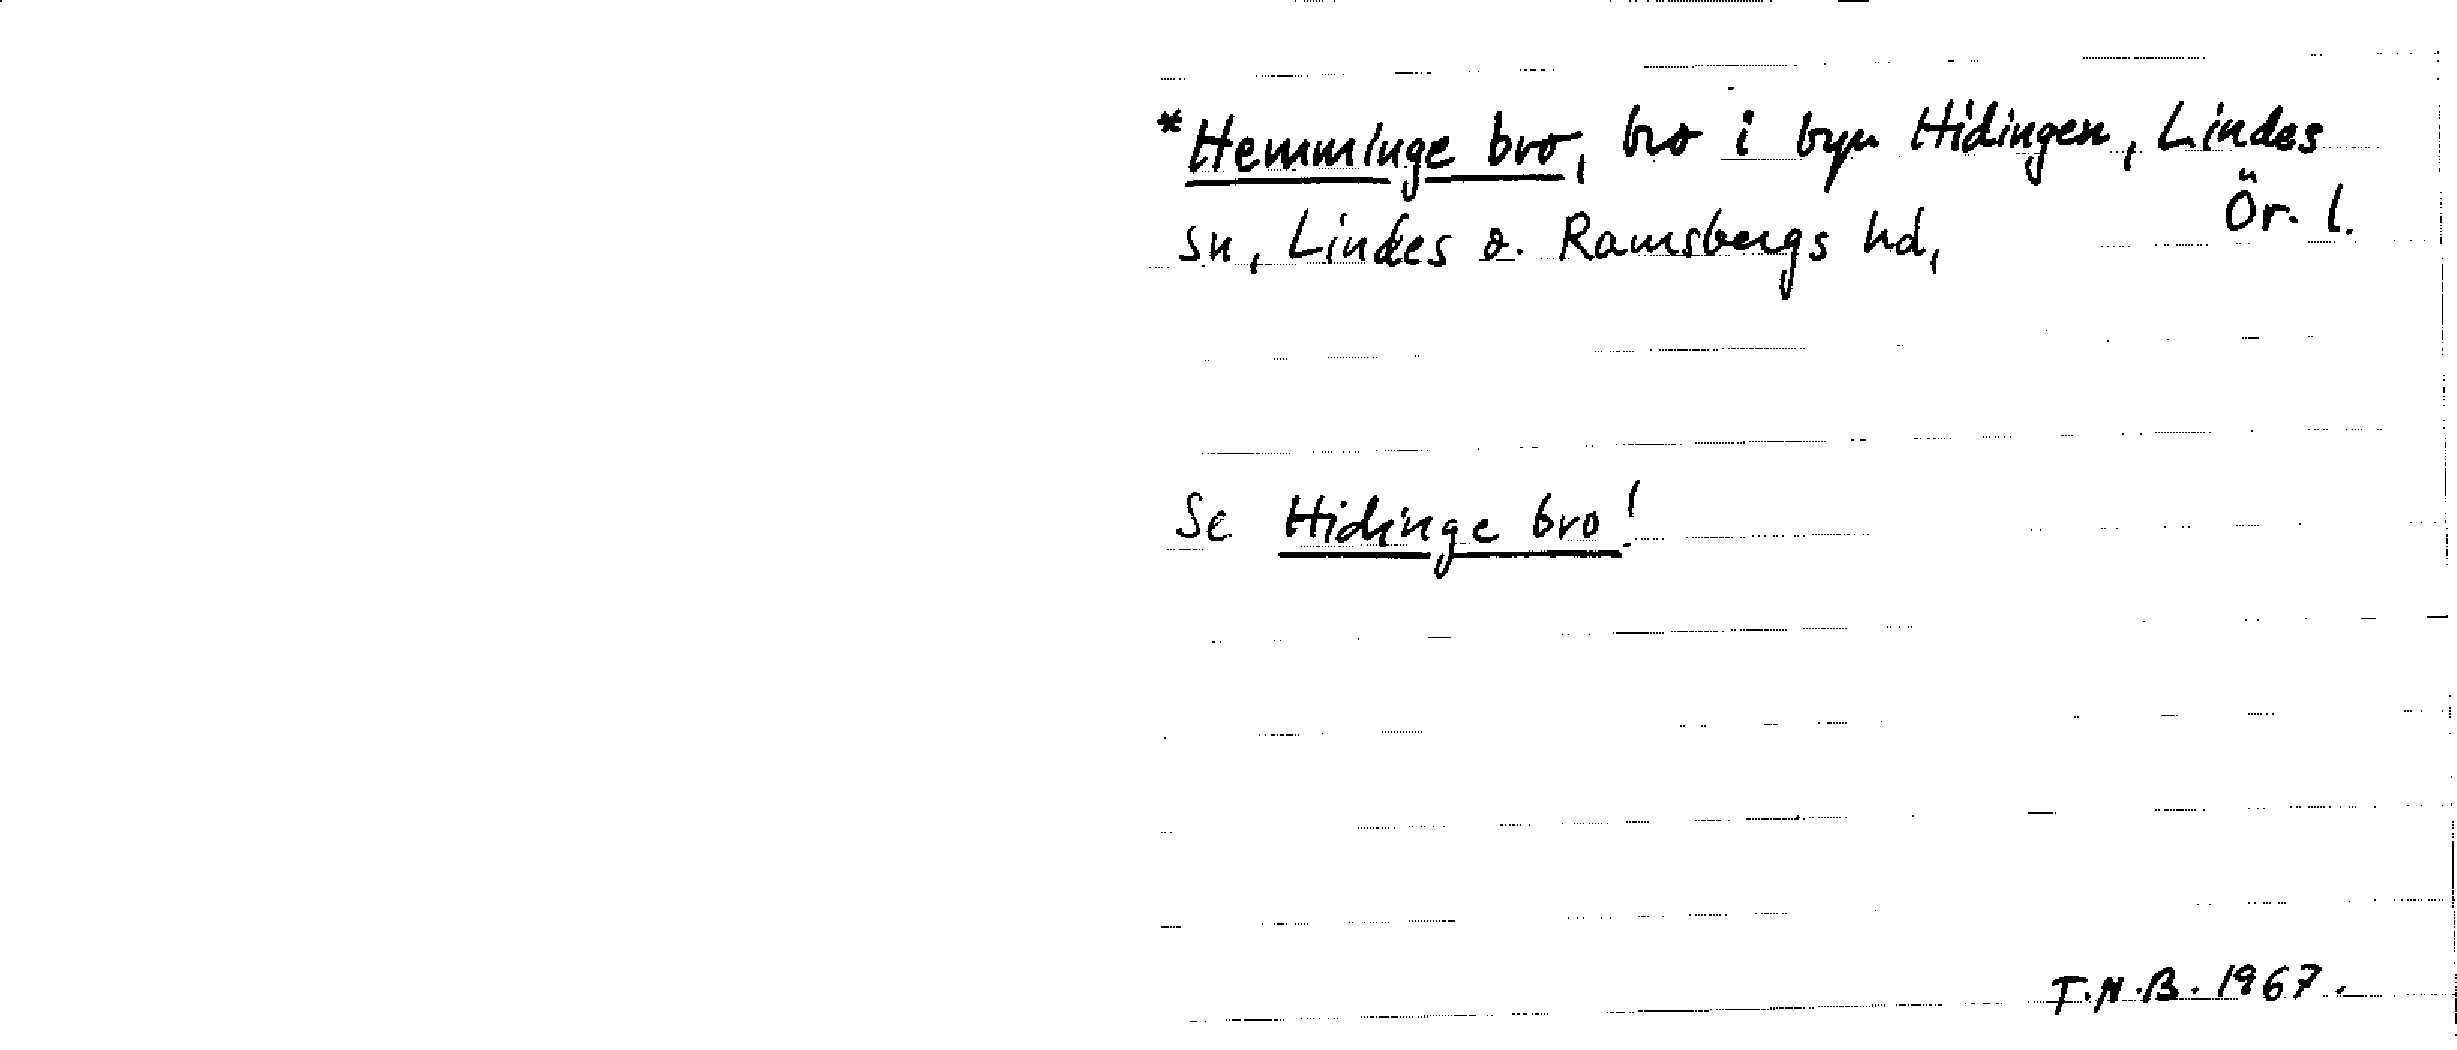 *Hemminge bro, bro i byn Hidingen, Lindes
sn, Lindes o. Ramsbergs hd, Ör. l.
Se Hidinge bro!
T.N.B. 1967.